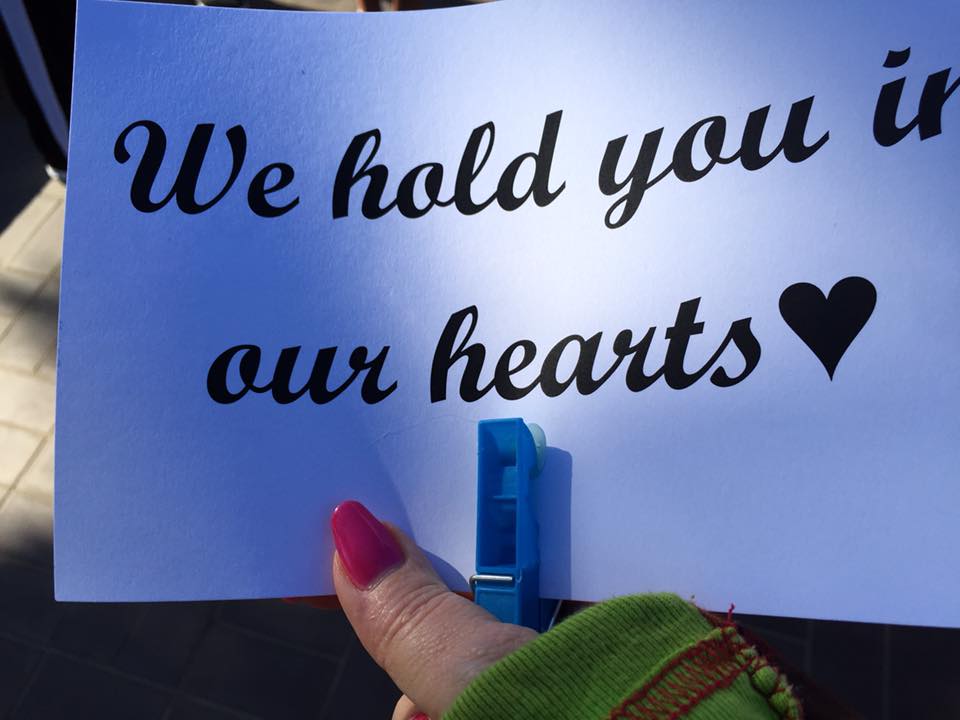 We hold you in
our hearts♥